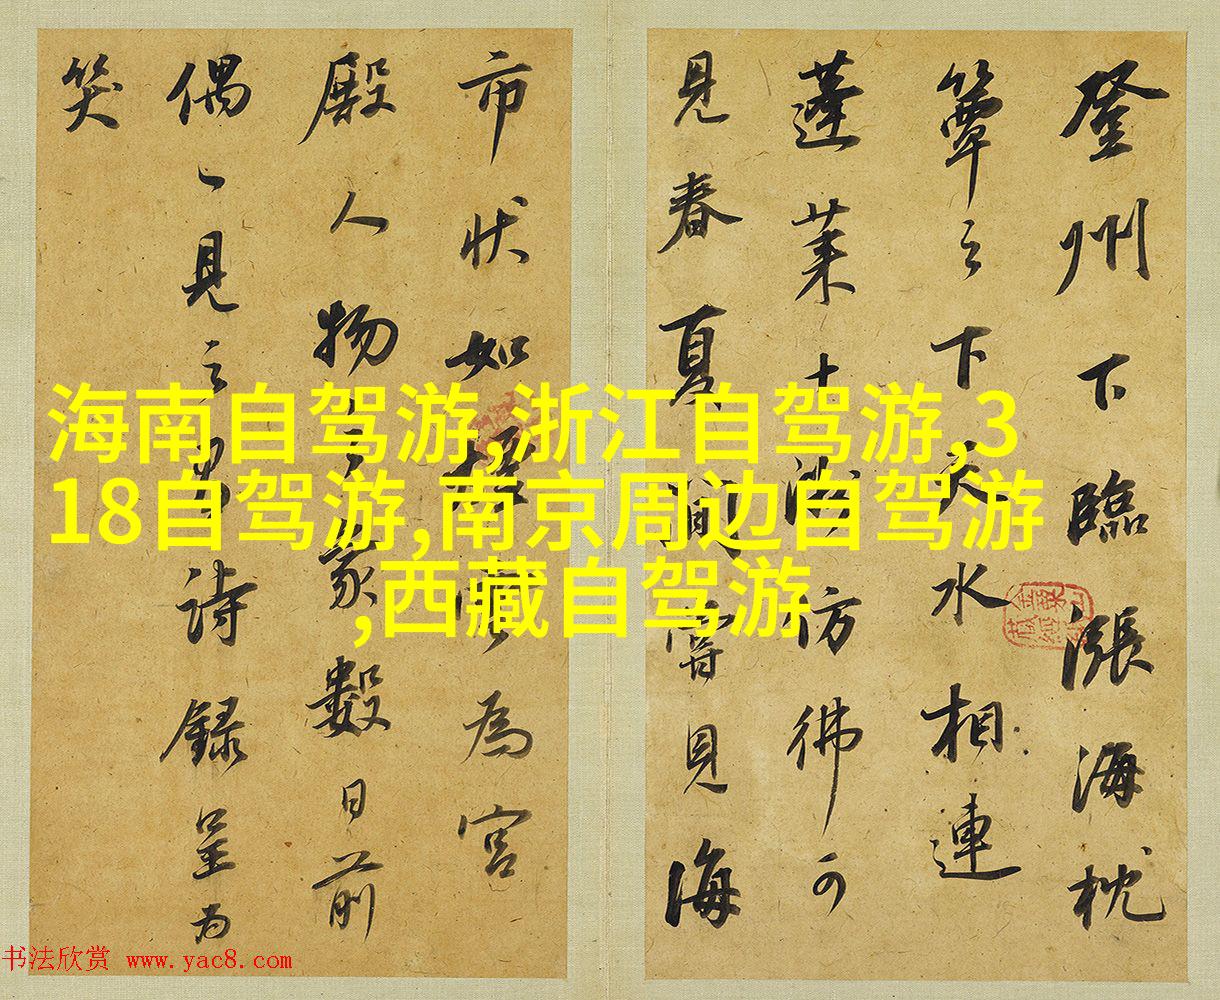 登州下臨漲海枕
簟之下天水相連
蓬萊十洲彷彿可
見春夏間寄見海
市狀如樓為宮
殿人物之象數日前
偶見之有詩録呈為
笑
海南自驾游,浙江自驾游,3
18自驾游,南京周边自驾游
,西藏自驾游
书法欣赏 www.yac8.com